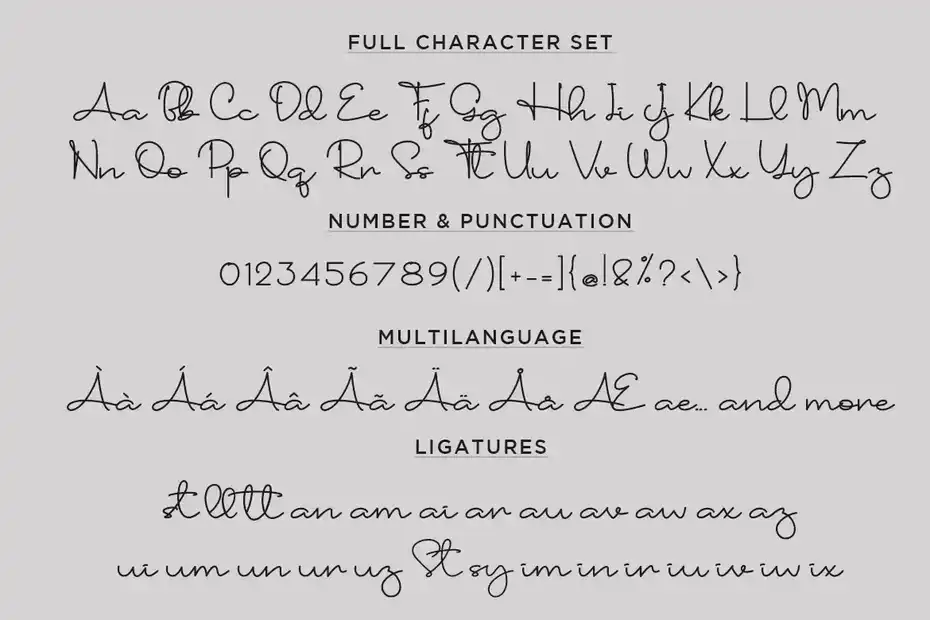 FULL CHARACTER SET
Aa Bb Cc Dd Ee Ff Gg Hh Ii Jj Kk Ll Mm
Nn Oo Pp Qq Rr Ss Tt Uu Vv Ww Xx Yy Zz
NUMBER & PUNCTUATION
0123456789(/)[+-=]{@!&%?<\>}
MULTILANGUAGE
Àà Áá Ââ Ãã Ää Åå Æ ae... and more
LIGATURES
st ll tt an am ai ar au av aw ax az
ui um un ur uz St sy im in ir iu iv iw ix